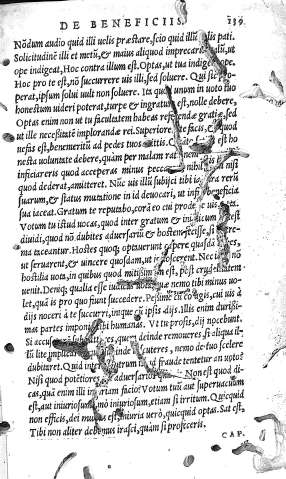 DE BENEFICIIS. 139.
Nõdum audio quid illi uelis præstare, scio quid illi uelis pati.
Solicitudinē illi et metũ, & maius aliquod imprecaris malũ, ut
ope indigeat, Hoc contra illum est. Optas, ut tua indigeat ope.
Hoc pro te est, nõ succurrere uis illi, sed soluere. Qui sic prope-
perat, ipsum solui uult non soluere. Ita quod unum in uoto tuo
honestum uideri poterat, turpe & ingratum est, nolle debere,
Optas enim non ut tu facultatem habeas referendæ gratiæ, sed
ut ille necessitatē implorandæ rei. Superiorē te facis, &
nefas est, benemeritũ ad pedes tuos mittis.
nesta uoluntate debere, quàm per malam rationem
inficiareris quod acceperas minus peccares nihil nisi
quod dederat, amitteret. Nũc uis illũ subijci tibi iactura rerũ
suarum, & status mutatione in id deuocari, ut infra beneficia
sua iaceat. Gratum te reputabo, corã eo cui prodesse uis
Votum tu istud uocas, quod inter gratum & inimicum
diuidi, quod nõ dubites aduersariũ & hostem fecisse, si
ma taceantur. Hostes quoq; optauerunt capere quasdã urbes,
ut seruarent, & uincere quosdam, ut ignoscerent. Nec ideo
hostilia uota, in quibus quod mitissimũ est, pòst crudelitatem
uenit. Deniq; qualia esse iudicas uota, quæ nemo tibi minus uo-
let, quã is pro quo fiunt succedere. Pessime cũ eo agis, cui uis à
dijs noceri à te succurri, inique cũ ipsis dijs. Illis enim durissi-
mas partes imponis tibi humanas. Vt tu profis, dij nocebunt.
Si accusatorem submitteres, quem deinde remoueres, si aliqua il-
lũ lite implicares, quam subinde discuteres, nemo de tuo scelere
dubitaret. Quid interest, utrum istud fraude tentetur an uoto?
Nisi quod potẽtiores illi aduersarios quæris. Non est quod di-
cas, quã enim illi iniuriam facio? Votum tuũ aut superuacuum
est, aut iniuriosum, imò iniuriosum, etiam si irritum. Quicquid
non efficis, dei munus est, iniuria uerò, quicquid optas. Sat est,
Tibi non aliter debemus irasci, quàm si profeceris.
CAP.